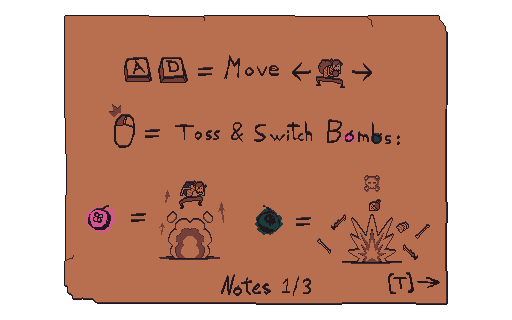 A D = Move
= Toss & Switch Bombs:
= =
Notes 1/3 [T]